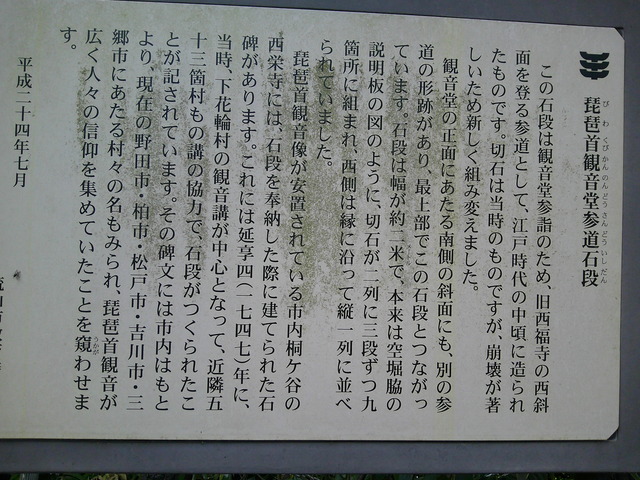 琵琶首観音堂参道石段
びわくびかんのんどうさんどういしだん
この石段は観音堂参詣のため、旧西福寺の西斜
面を登る参道として、江戸時代の中頃に造られ
たものです。切石は当時のものですが、崩壊が著
しいため新しく組み変えました。
観音堂の正面にあたる南側の斜面にも、別の参
道の形跡があり、最上部でこの石段とつながっ
ています。石段は幅が約二米で、本来は空堀脇の
説明板の図のように、切石が二列に三段ずつ九
箇所に組まれ、西側は縁に沿って縦一列に並べ
られていました。
琵琶首観音像が安置されている市内桐ケ谷の
西栄寺には、石段を奉納した際に建てられた石
碑があります。これには延享四(一七四七)年に、
当時、下花輪村の観音講が中心となって、近隣五
十三箇村もの講の協力で、石段がつくられたこ
とが記されています。その碑文には市内はもと
より、現在の野田市・柏市・松戸市・吉川市・三
郷市にあたる村々の名もみられ、琵琶首観音が
広く人々の信仰を集めていたことを窺わせま
うかが
す。
平成二十四年七月